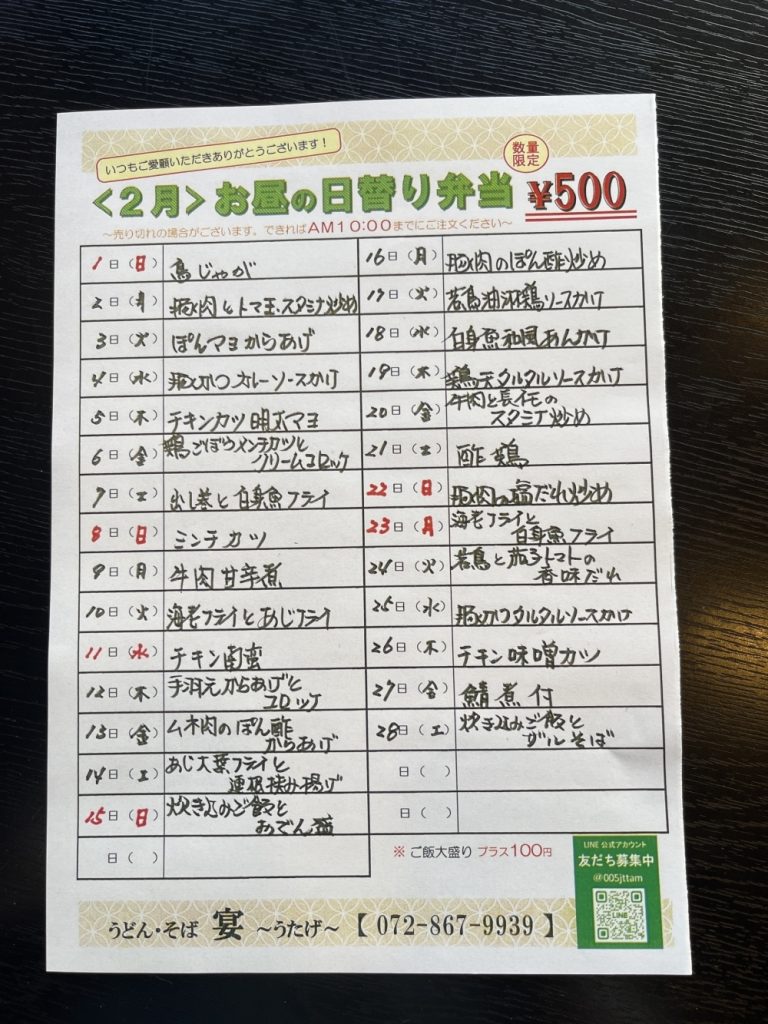 いつもご愛顧いただきありがとうございます!
数量
限定
<2月>お昼の日替り弁当 ¥500
~売り切れの場合がございます。できればAM10:00までにご注文ください~
1日(日) 鳥じゃが
2日(月) 豚肉とトマ玉スタミナ炒め
3日(火) ぽんマヨからあげ
4日(水) 豚かつカレーソースかけ
5日(木) チキンカツ明太マヨ
6日(金) 鶏ごぼうメンチカツと
クリームコロッケ
7日(土) 出し巻と白身魚フライ
8日(日) ミンチカツ
9日(月) 牛肉甘辛煮
10日(火) 海老フライとあじフライ
11日(水) チキン南蛮
12日(木) 手羽元からあげと
コロッケ
13日(金) ムネ肉のぽん酢
からあげ
14日(土) あじ大葉フライと
連根挟み揚げ
15日(日) 炊き込みご飯と
おでん
日( )
16日(月) 豚肉のぽん酢炒め
17日(火) 若鳥油淋鶏ソースかけ
18日(水) 白身魚和風あんかけ
19日(木) 鶏天タルタルソースかけ
20日(金) 牛肉と長イモの
スタミナ炒め
21日(土) 酢鶏
22日(日) 豚肉の塩だれ炒め
23日(月) 海老フライと
白身魚フライ
24日(火) 若鳥と茄子トマトの
香味だれ
25日(水) 豚かつタルタルソースかけ
26日(木) チキン味噌カツ
27日(金) 鯖煮付
28日(土) 炊き込みご飯と
ザルそば
日( )
日( )
※ ご飯大盛り プラス100円
LINE 公式アカウント
友だち募集中
@005jttam
LINE
うどん・そば 宴 ~うたげ~ 【 072-867-9939 】